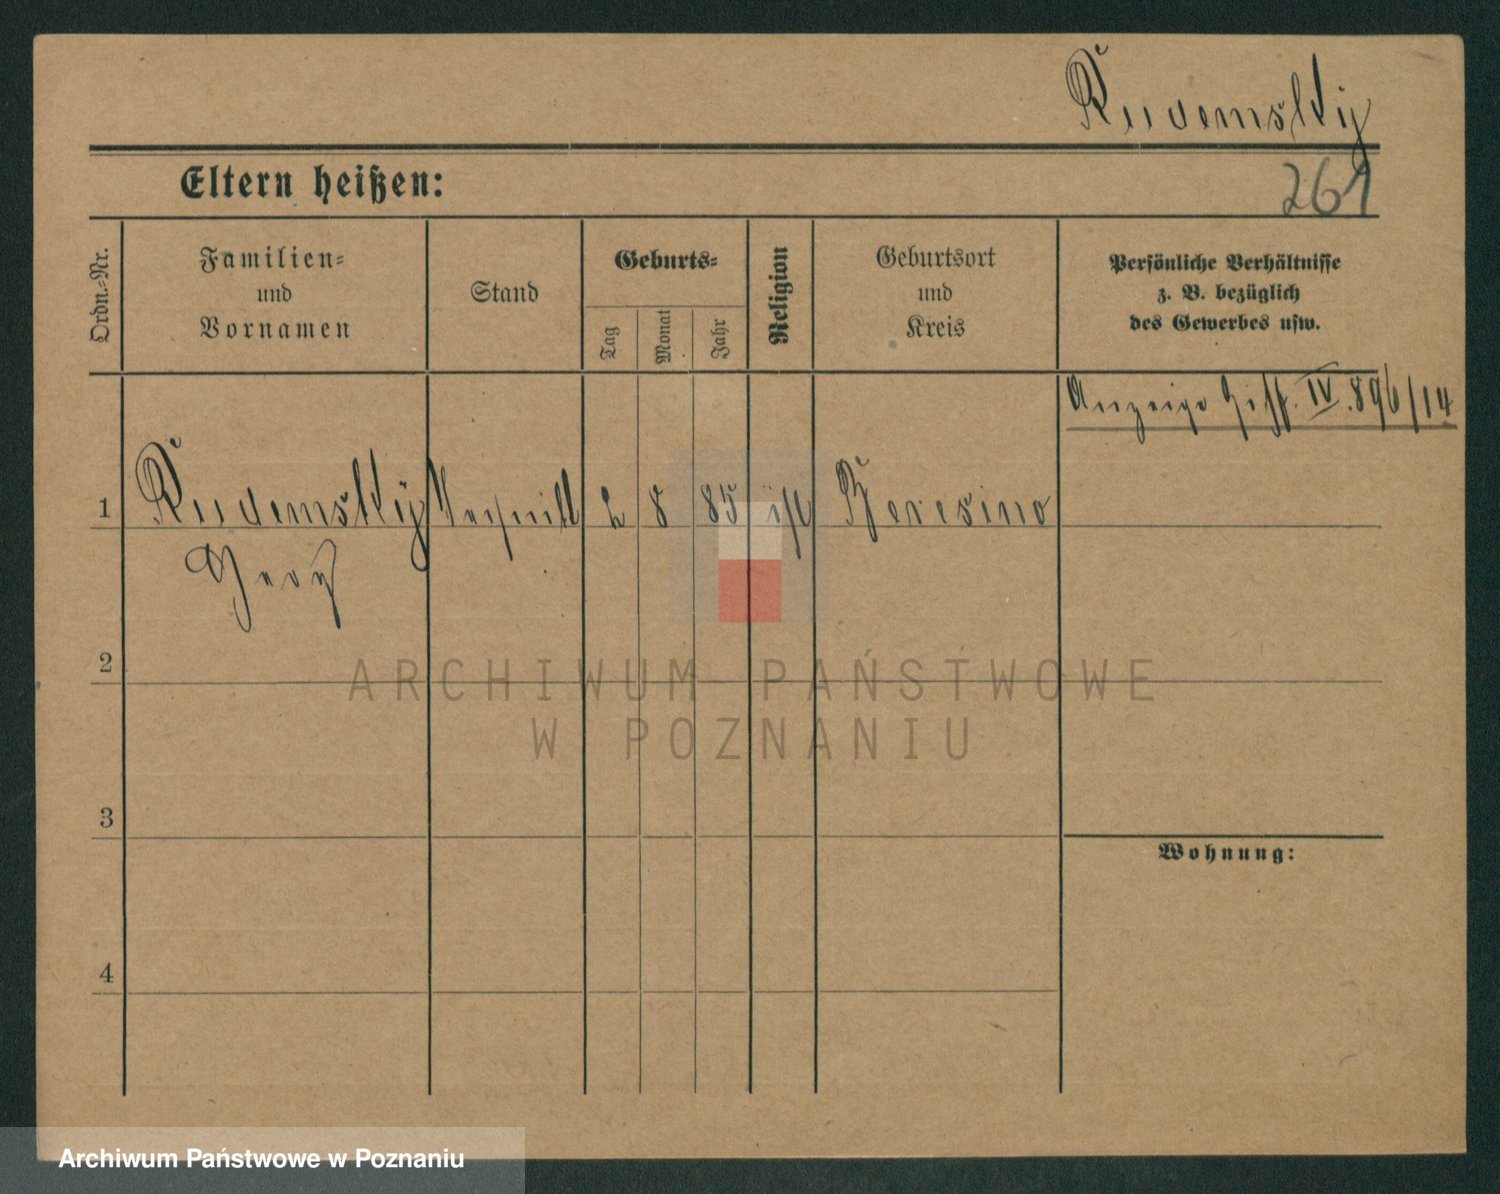 Rudemsky
Eltern heißen:
261
Ordn.-Nr.
Familien-
und
Vornamen
Stand
Geburts-
Tag
Monat
Jahr
Religion
Geburtsort
und
Kreis
Persönliche Verhältnisse
z. B. bezüglich
des Gewerbes usw.
Anzeige Gesch. IV.896/14
1 Rudemsky 2 8 85 isr Beresino
Georg
2
ARCHIWUM PAŃSTWOWE
W POZNANIU
3
Wohnung:
4
Archiwum Państwowe w Poznaniu